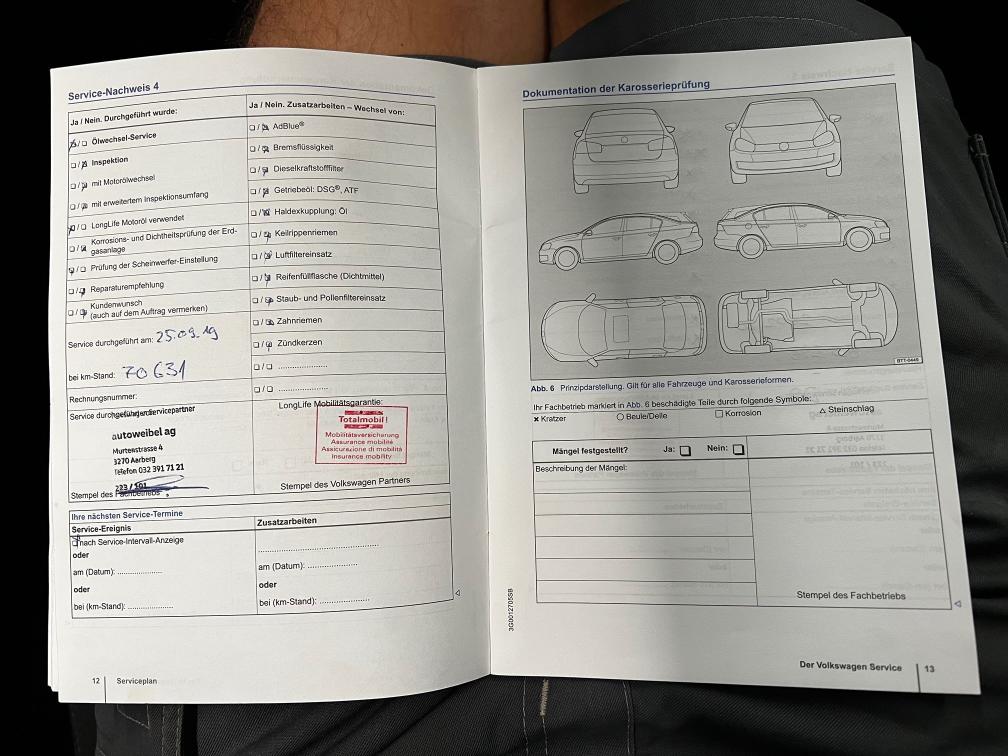 Service-Nachweis 4
Ja / Nein. Durchgeführt wurde:
☒/☐ Ölwechsel-Service
☐/☒ Inspektion
☐/☒ mit Motorölwechsel
☐/☒ mit erweitertem Inspektionsumfang
☒/☐ LongLife Motoröl verwendet
☐/☒ Korrosions- und Dichtheitsprüfung der Erd-
gasanlage
☒/☐ Prüfung der Scheinwerfer-Einstellung
☐/☒ Reparaturempfehlung
☐/☒ Kundenwunsch
(auch auf dem Auftrag vermerken)
Service durchgeführt am: 25.09.19
bei km-Stand: 70 631
Rechnungsnummer:
Service durchgeführt
Servicepartner
autoweibel ag
Murtenstrasse 4
3270 Aarberg
Telefon 032 391 71 21
223 / 101
Stempel des Fachbetriebs
Ja / Nein. Zusatzarbeiten – Wechsel von:
☐/☒ AdBlue®
☐/☒ Bremsflüssigkeit
☐/☒ Dieselkraftstofffilter
☐/☒ Getriebeöl: DSG®, ATF
☐/☒ Haldexkupplung: Öl
☐/☒ Keilrippenriemen
☐/☒ Luftfiltereinsatz
☐/☒ Reifenfüllflasche (Dichtmittel)
☐/☒ Staub- und Pollenfiltereinsatz
☐/☒ Zahnriemen
☐/☒ Zündkerzen
☐/☐ ......................
☐/☐ ......................
LongLife Mobilitätsgarantie:
Totalmobil!
Mobilitätsversicherung
Assurance mobilité
Assicurazione di mobilità
Insurance mobility
Stempel des Volkswagen Partners
Ihre nächsten Service-Termine
Service-Ereignis
☒ nach Service-Intervall-Anzeige
oder
am (Datum): ....................
oder
bei (km-Stand): ....................
Zusatzarbeiten
......................................
am (Datum): ....................
oder
bei (km-Stand): ....................
12 Serviceplan
Dokumentation der Karosserieprüfung
BTT-0449
Abb. 6 Prinzipdarstellung. Gilt für alle Fahrzeuge und Karosserieformen.
Ihr Fachbetrieb markiert in Abb. 6 beschädigte Teile durch folgende Symbole:
✕ Kratzer ○ Beule/Delle □ Korrosion △ Steinschlag
Mängel festgestellt? Ja: ☐ Nein: ☐
Beschreibung der Mängel:
Stempel des Fachbetriebs
3G0012705SB
Der Volkswagen Service 13